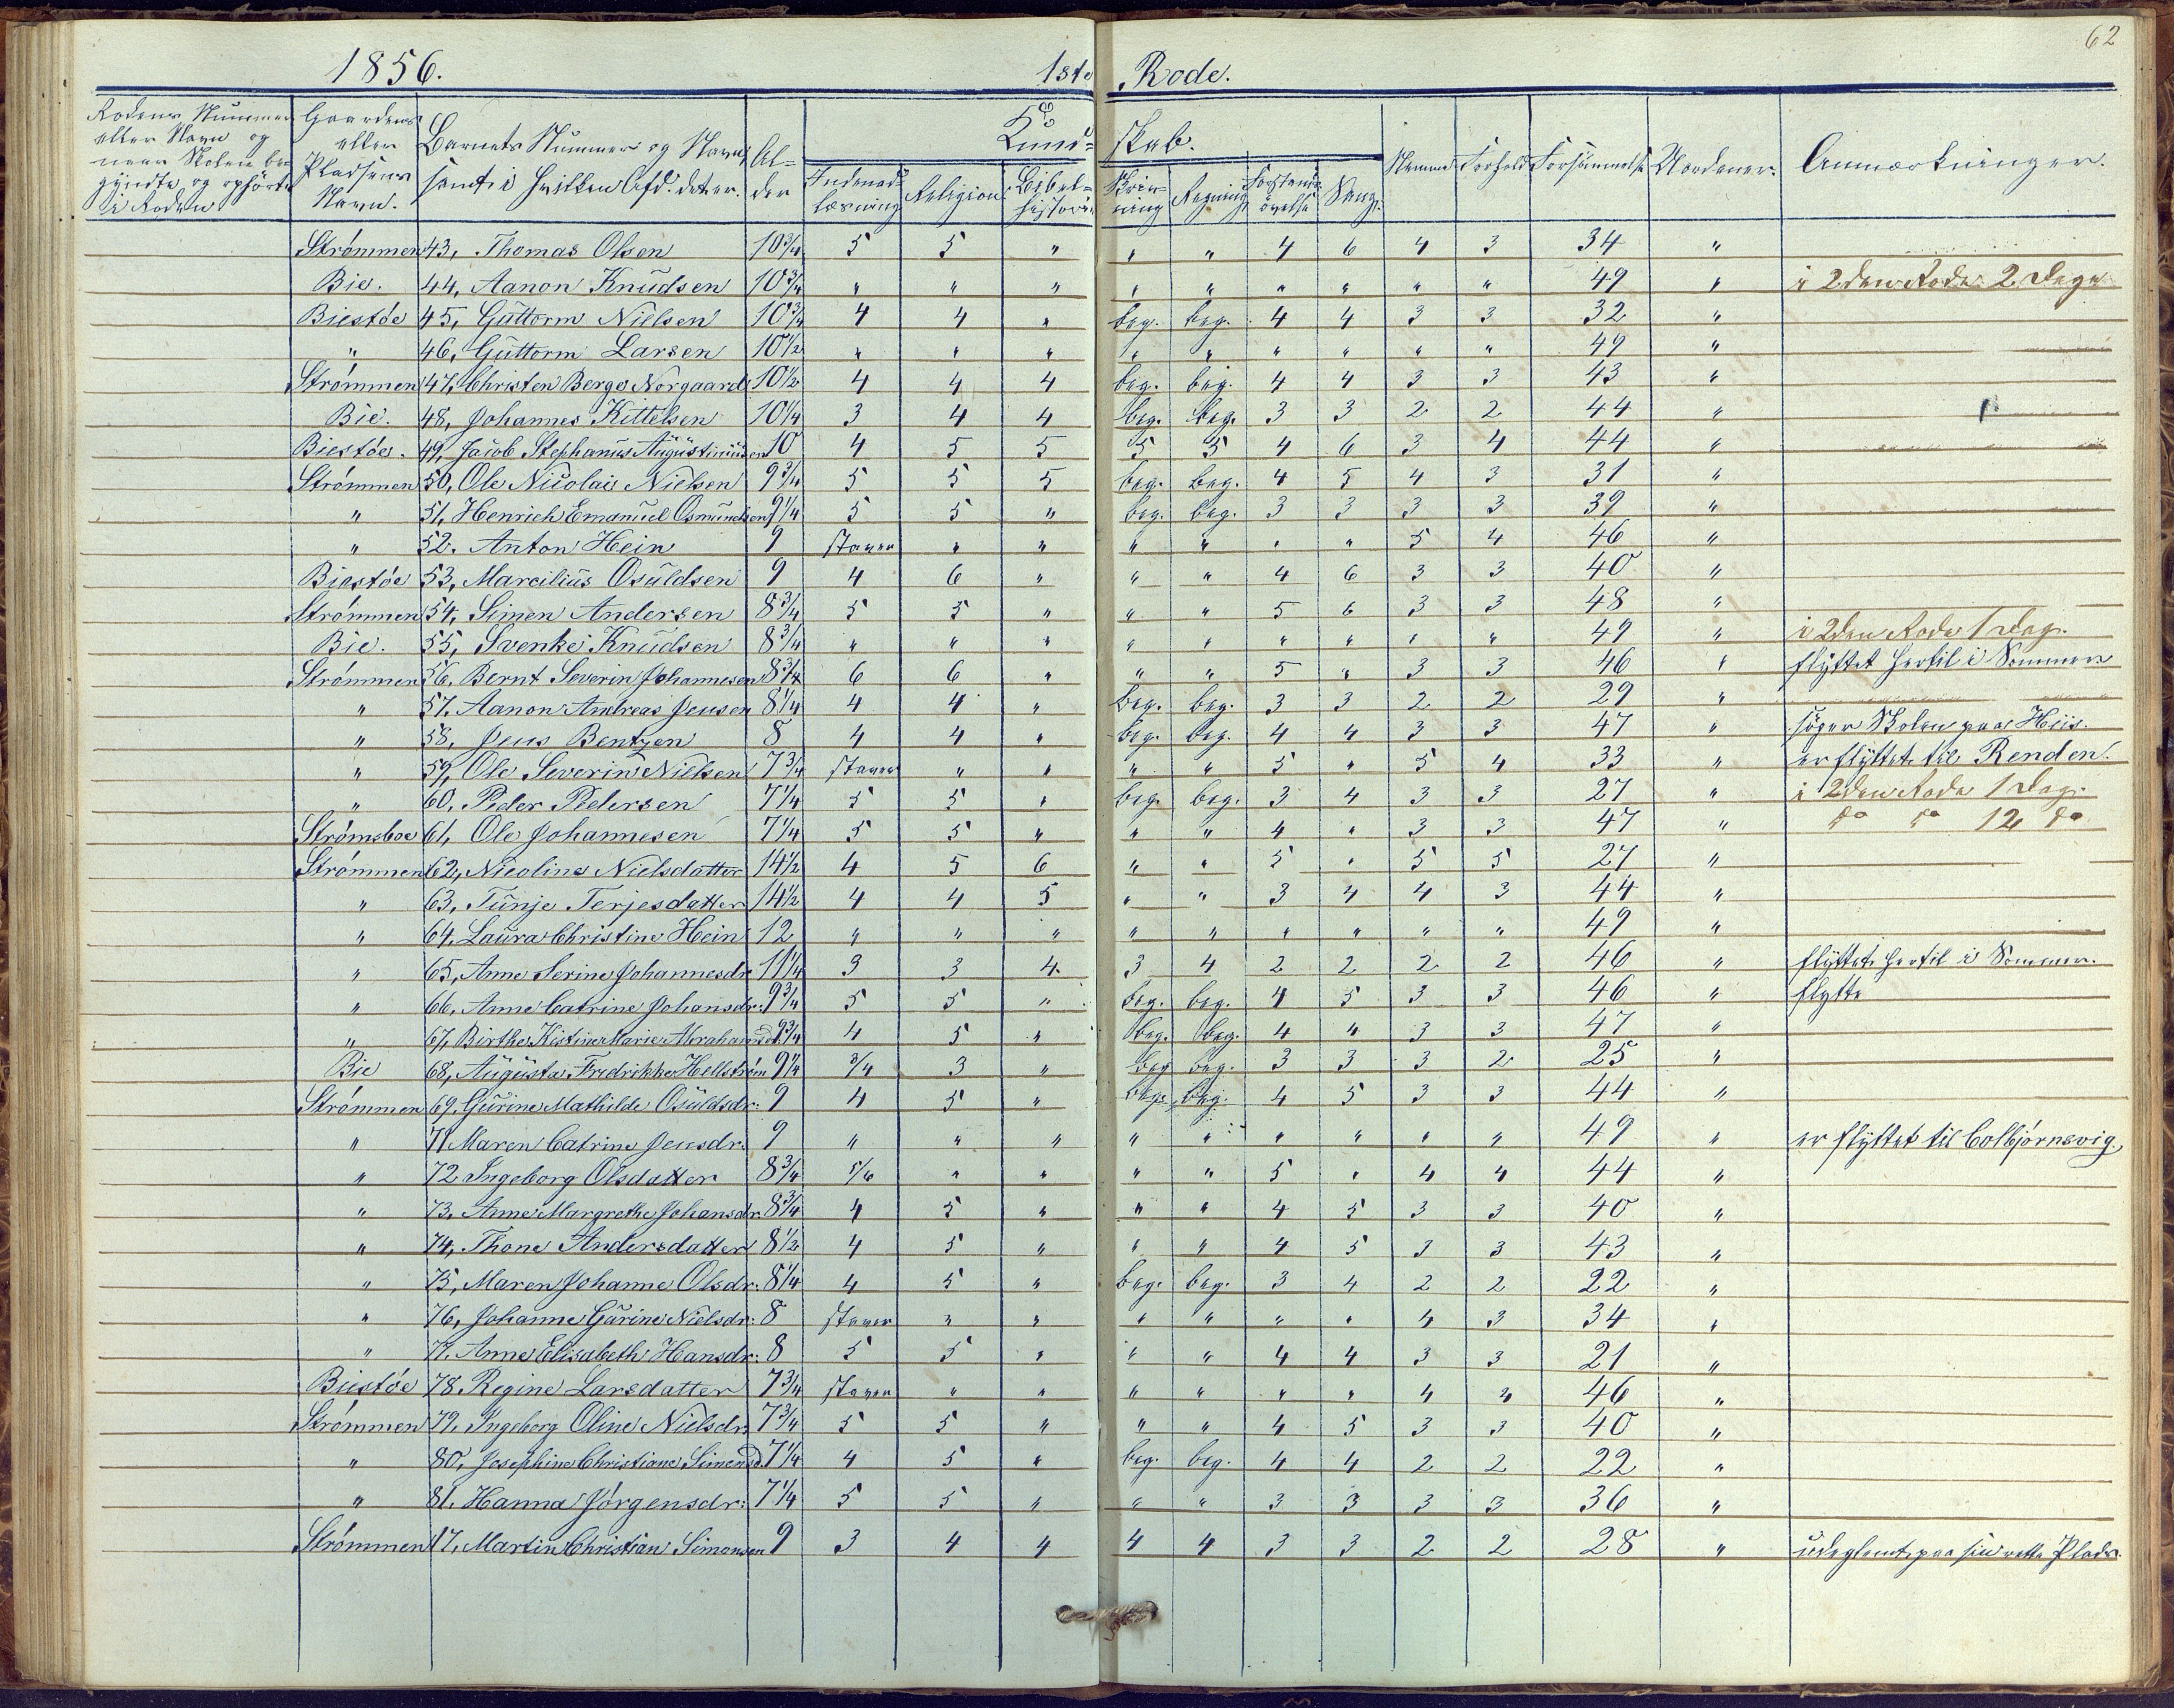 62
1856. 1ste Rode.
Rodens Nummer eller Navn og naar Skolen begyndte og ophörte i Roden
Gaardens eller Pladsens Navn.
Barnets Nummer og Navn, samt i hvilken Afd. det er.
Alder
Kundskab.
Indenadlæsning Religion Bibelhistorie Skrivning Regning Forstandsövelse Sang.
Nemme Forhold Forsömmelse Uordener. Anmærkninger.
Strömmen 43, Thomas Olsen 10 3/4 5 5 " " " 4 6 4 3 34 "
Bie. 44, Aanon Knudsen 10 3/4 " " " " " " " " " 49 " i 2den Rode 2 Dage
Biestöe 45, Guttorm Nielsen 10 3/4 4 4 " beg. beg. 4 4 3 3 32 "
" 46, Guttorm Larsen 10 1/2 " " " " " " " " " 49 "
Strömmen 47, Christen Berge Norgaard 10 1/2 4 4 4 beg. beg. 4 4 3 3 43 "
Bie. 48, Johannes Kittelsen 10 1/4 3 4 4 beg. beg. 3 3 2 2 44 "
Biestöe. 49, Jacob Stephanus Augustinusen 10 4 5 5 5 5 4 6 3 4 44 "
Strömmen 50, Ole Nicolai Nielsen 9 3/4 5 5 5 beg. beg. 4 5 4 3 31 "
" 51, Henrich Emanuel Osmundsen 9 1/4 5 5 " beg. beg. 3 3 3 3 39 "
" 52. Anton Hein 9 staver " " " " " " 5 4 46 "
Biestöe 53, Marcilius Osuldsen 9 4 6 " " " 4 6 3 3 40 "
Strömmen 54, Simen Andersen 8 3/4 5 5 " " " 5 6 3 3 48 "
Bie. 55, Svenke Knudsen 8 3/4 " " " " " " " " " 49 " i 2den Rode 1 Dag.
Strömmen 56, Bernt Severin Johannesen 8 3/4 6 6 " " " 5 " 3 3 46 " flyttet hertil i Sommer
" 57. Aanon Andreas Jensen 8 1/4 4 4 " beg. beg. 3 3 2 2 29 "
" 58, Jens Bentzen 8 4 4 " beg. beg. 4 4 3 3 47 " söger Skolen paa Hiis.
" 59, Ole Severin Nielsen 7 3/4 staver " " " " 5 " 5 4 33 " er flyttet til Renden.
" 60, Peder Pedersen 7 1/4 5 5 " beg. beg. 3 4 3 3 27 " i 2den Rode 1 Dag.
Strömsboe 61, Ole Johannesen 7 1/4 5 5 " " " 4 " 3 3 47 " do do 12 do
Strömmen 62, Nicoline Nielsdatter 14 1/2 4 5 6 " " 5 " 5 5 27 "
" 63, Tunje Terjesdatter 14 1/2 4 4 5 " " 3 4 4 3 44 "
" 64, Laura Christine Hein 12 " " " " " " " " " 49 "
" 65, Anne Serine Johannesdr 11 1/4 3 3 4. 3 4 2 2 2 2 46 " flyttet hertil i Sommer.
" 66, Anne Catrine Johansdr: 9 3/4 5 5 " beg. beg. 4 5 3 3 46 " flytte
" 67, Birthe Kistine Marie Abrahamsd. 9 3/4 4 5 " beg. beg. 4 4 3 3 47 "
Bie 68, Augusta Fredrikke Hellström 9 1/4 3/4 3 " beg beg. 3 3 3 2 25 "
Strömmen 69, Gurine Mathilde Osuldsdr: 9 4 5 " beg. beg. 4 5 3 3 44 "
" 71 Maren Catrine Jensdr. 9 " " " " " " " " " 49 " er flyttet til Colbjörnsvig.
" 72 Ingeborg Olsdatter 8 3/4 5/6 " " " " 5 " 4 4 44 "
" 73. Anne Margrethe Johansdr. 8 3/4 4 5 " " " 4 5 3 3 40 "
" 74, Thone Andersdatter 8 1/2 4 5 " " " 4 5 3 3 43 "
" 75, Maren Johanne Olsdr: 8 1/4 4 5 " beg. beg. 3 4 2 2 22 "
" 76, Johanne Gurine Nielsdr: 8 staver " " " " " " 4 3 34 "
" 77. Anne Elisabeth Hansdr: 8 5 5 " " " 4 4 3 3 21 "
Biestöe 78. Regine Larsdatter 7 3/4 staver " " " " " " 4 4 46 "
Strömmen 79, Ingeborg Oline Nielsdr. 7 3/4 5 5 " " " 4 5 3 3 40 "
" 80, Josephine Christiane Simensd. 7 1/4 4 5 " beg. beg. 4 4 2 2 22 "
" 81. Hanna Jörgensdr: 7 1/4 5 5 " " " 3 3 3 3 36 "
Strömmen 17, Martin Christian Simonsen 9 3 4 4 4 4 3 3 2 2 28 " udeglemt paa sin rette Plads.